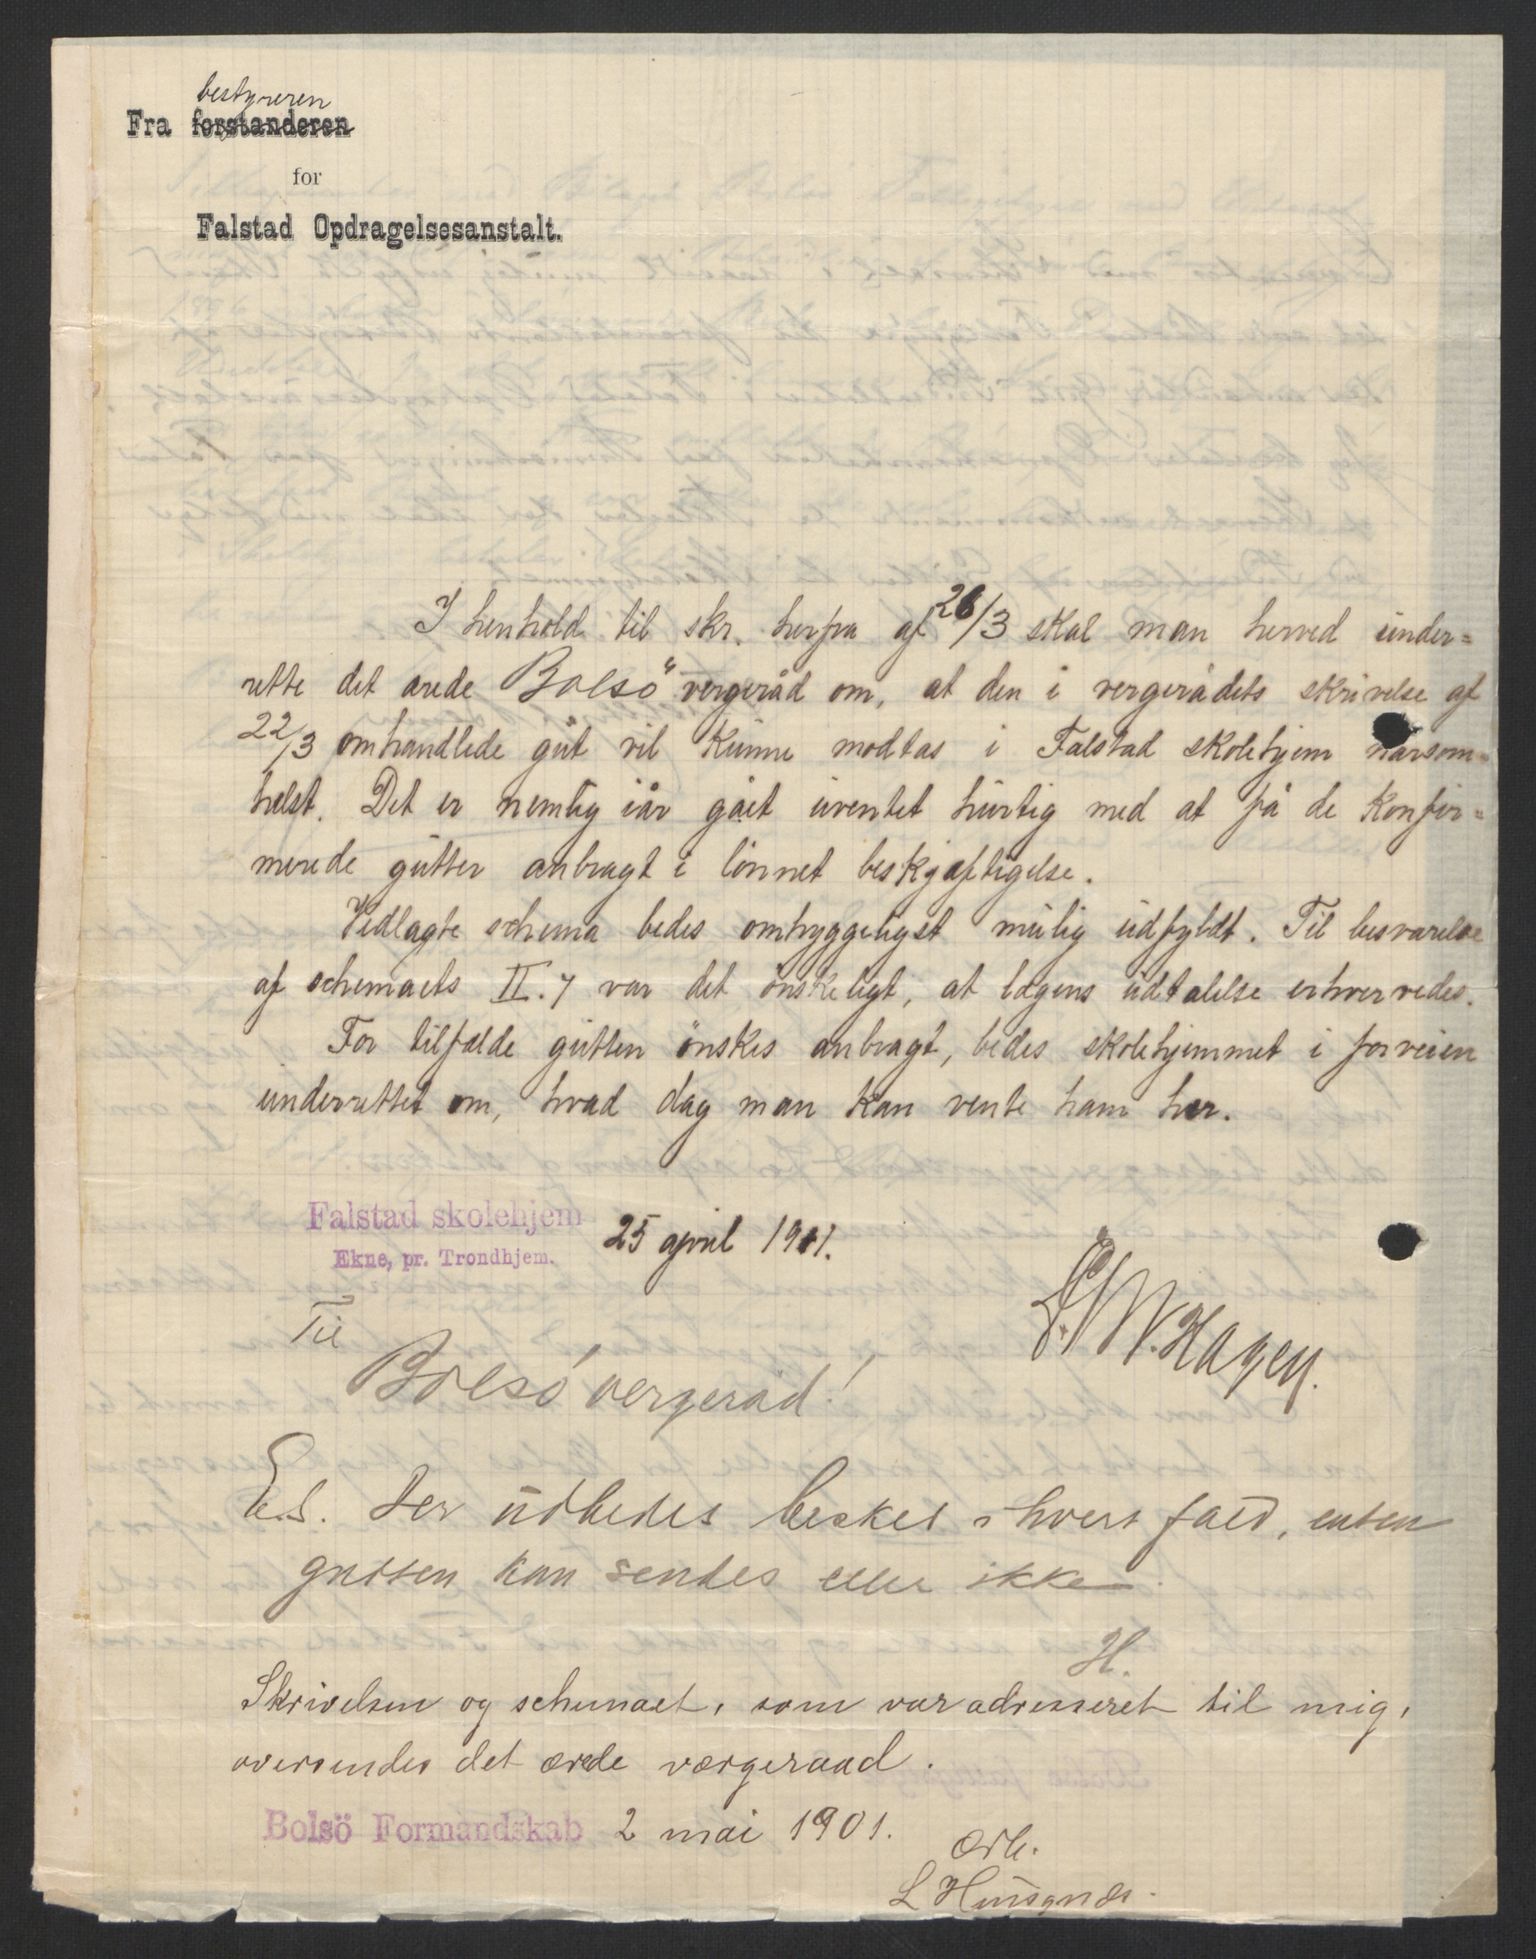 bestyreren
Fra forstanderen
for
Falstad Opdragelsesanstalt.
I henhold til skr. herfra af 26/3 skal man herved under=
rette det ærede Bolsö vergeråd om, at den i vergerådets skrivelse af
22/3 omhandlede gut vil kunne modtas i Falstad skolehjem nårsom=
helst. Det er nemlig iår gået uventet hurtig med at få de konfir=
merede gutter anbragt i lönnet beskjæftigelse.
Vedlagte schema bedes omhyggeligst mulig udfyldt. Til besvarelse
af schemaets II.7 var det önskeligt, at lægens udtalelse erhvervedes.
For tilfælde gutten önskes anbragt, bedes skolehjemmet i forveien
underrettet om, hvad dag man kan vente ham her.
Falstad skolehjem 25 april 1901.
Ekne, pr. Trondhjem.
W. Hagen.
Til
Bolsö vergeråd!
E.s. Der udbedes besked i hvert fald, enten
gutten kan sendes eller ikke.
H.
Skrivelsen og schemaet, som var adresseret til mig,
oversendes det ærede værgeraad.
Bolsö Formandskab 2 mai 1901.
Ærb.
L Husgnæs.